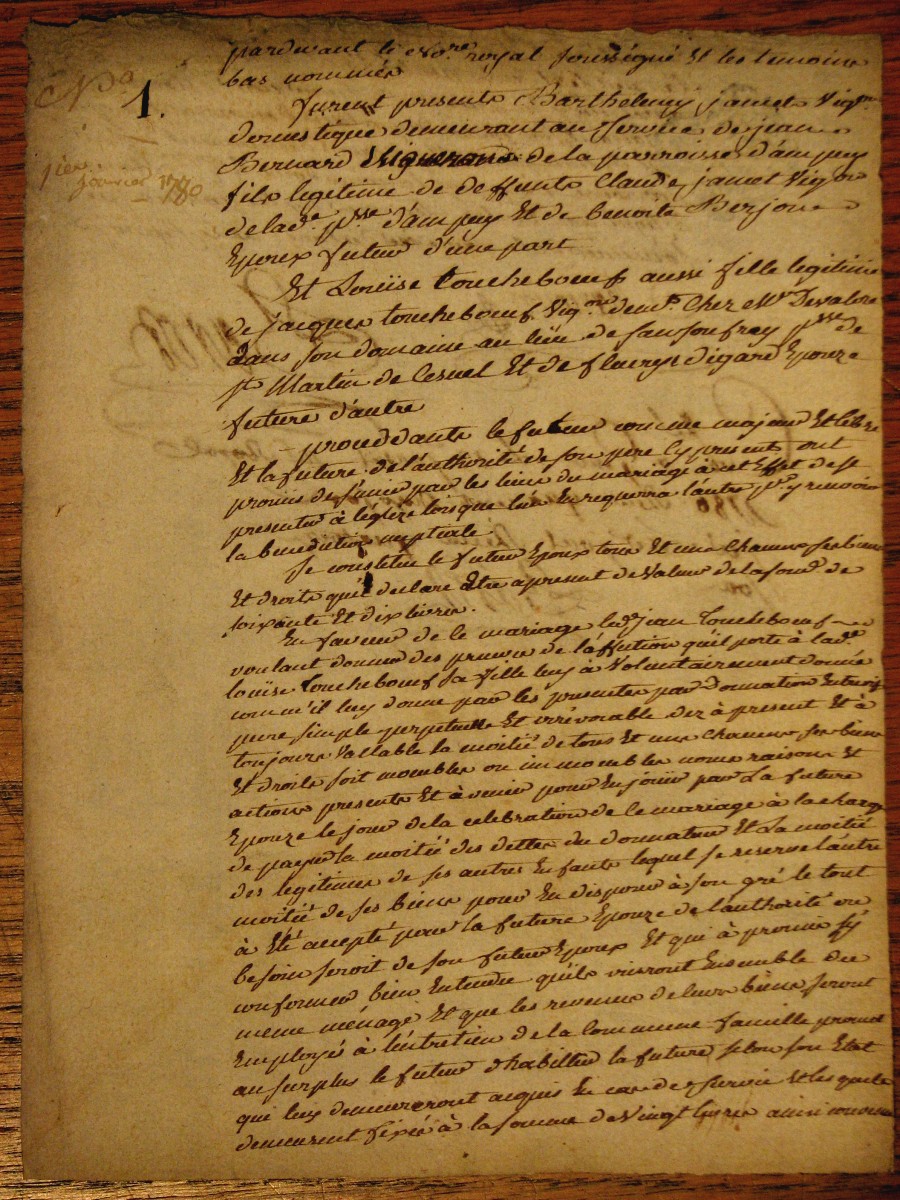 N°
1.
1ier janvier 1780
pardevant le No.re royal soussigné Et les temoins
bas nommés
furent presents Barthelemy jamet Vig.on
domestique demeurant au service de jean
Bernard de la parroisse d'ampuy
fils legitime de deffunts Claude jamet Vig.on
de lad.e p.sse d'ampuy Et de benoite Berjon
Epoux futur d'une part
Et Louise touchebœuf aussi fille legitime
de jacques touchebœuf Vig.on dem.t Chez M.r Devalore
dans son domaine au lieu de p.sse de
S.t Martin de Et de fleurye digard Epouze
future d'autre
proceddants le futur comme majeur Et libre
Et la future de l'authorité de son pere Cy present ont
promis de s'unir par les liens du mariage à cet Effet de se
presenter à léglize lorsque lun En requerra lautre p.r y recevoir
la benediction nuptiale.
Se constitue le futur Epoux tous Et uns Chacuns ses biens
Et droits qu'il declare Etre apresent de Valeur de la som.e de
soixante Et dix livres.
En faveur de ce mariage led. jean Touchebœuf
voulant donner des preuves de l'affection qu'il porte à lad.e
louise Touchebœuf sa fille luy à Volontairement donné
comm'il luy donne par les presentes par Donnation Entrevifs
pure simple perpetuelle Et irrévocable dez à present Et à
toujours Vallable la moitié de tous Et uns Chacuns ses biens
Et droits soit meubles ou immeubles noms raisons Et
actions presents Et à venir pour En jouir par La future
Epouze le jour de la celebration de ce mariage à la charge
de payer la moitié des dettes du donnateur Et La moitié
des legitimes de ses autres Enfants lequel se reserve l'autre
moitié de ses biens pour En disposer à son gré le tout
à Eté accepté par la future Epouze de l'authorité ou
besoin seroit de son futur Epoux Et qui à promis s'y
conformer bien Entendu qu'ils vivront Ensemble du
meme ménage Et que les revenus de leurs biens seront
Employés à lentretien de la Commune famille promet
au surplus le futur d'habiller la future selon son Etat
qui luy demeureront acquis En cas de survie Et lesquels
demeurent fixés à la somme de Vingt livres ainsi convenu